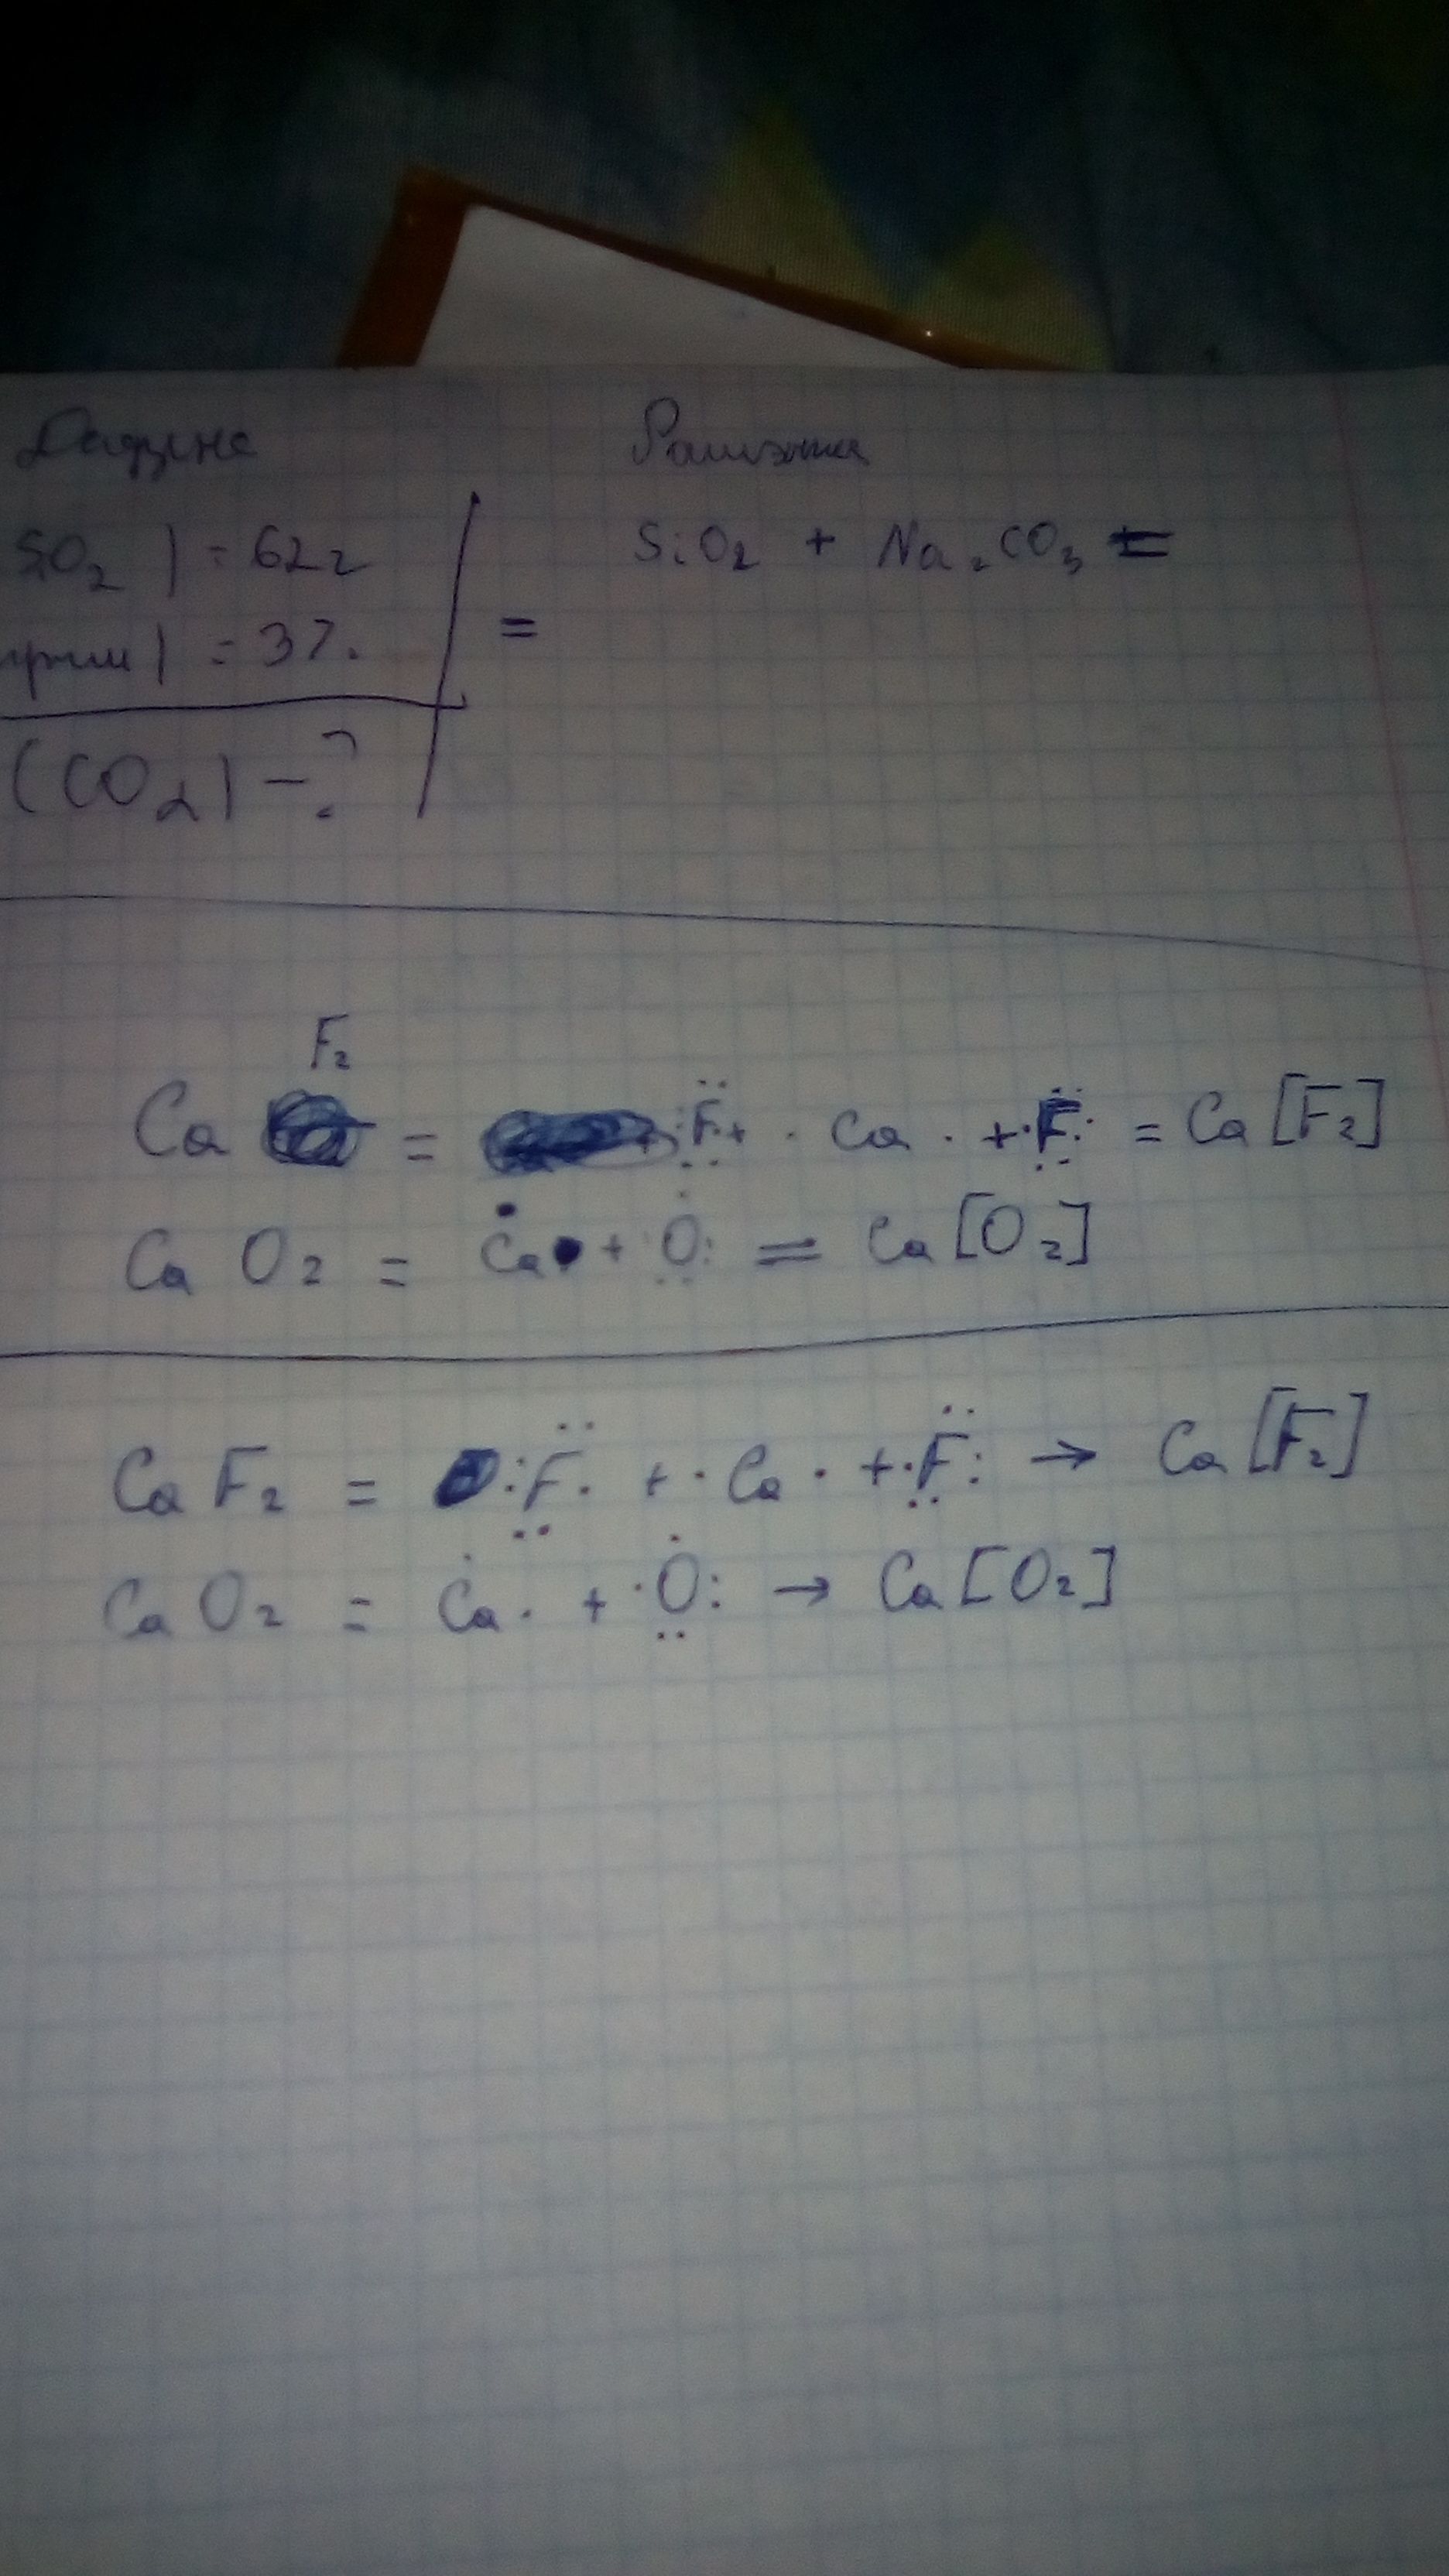 Дадзена Рашэнне
SiO₂) = 62г SiO₂ + Na₂CO₃ =
) = 3%. =
(CO₂) - ?
F₂
Ca = :F̤̈· + · Ca · + ·F̤̈: = Ca [F₂]
Ca O₂ = Ċa· + ·Ȯ̤: = Ca [O₂]
Ca F₂ = :F̤̈· + · Ca · + ·F̤̈: → Ca [F₂]
Ca O₂ = Ċa· + ·Ȯ̤: → Ca [O₂]